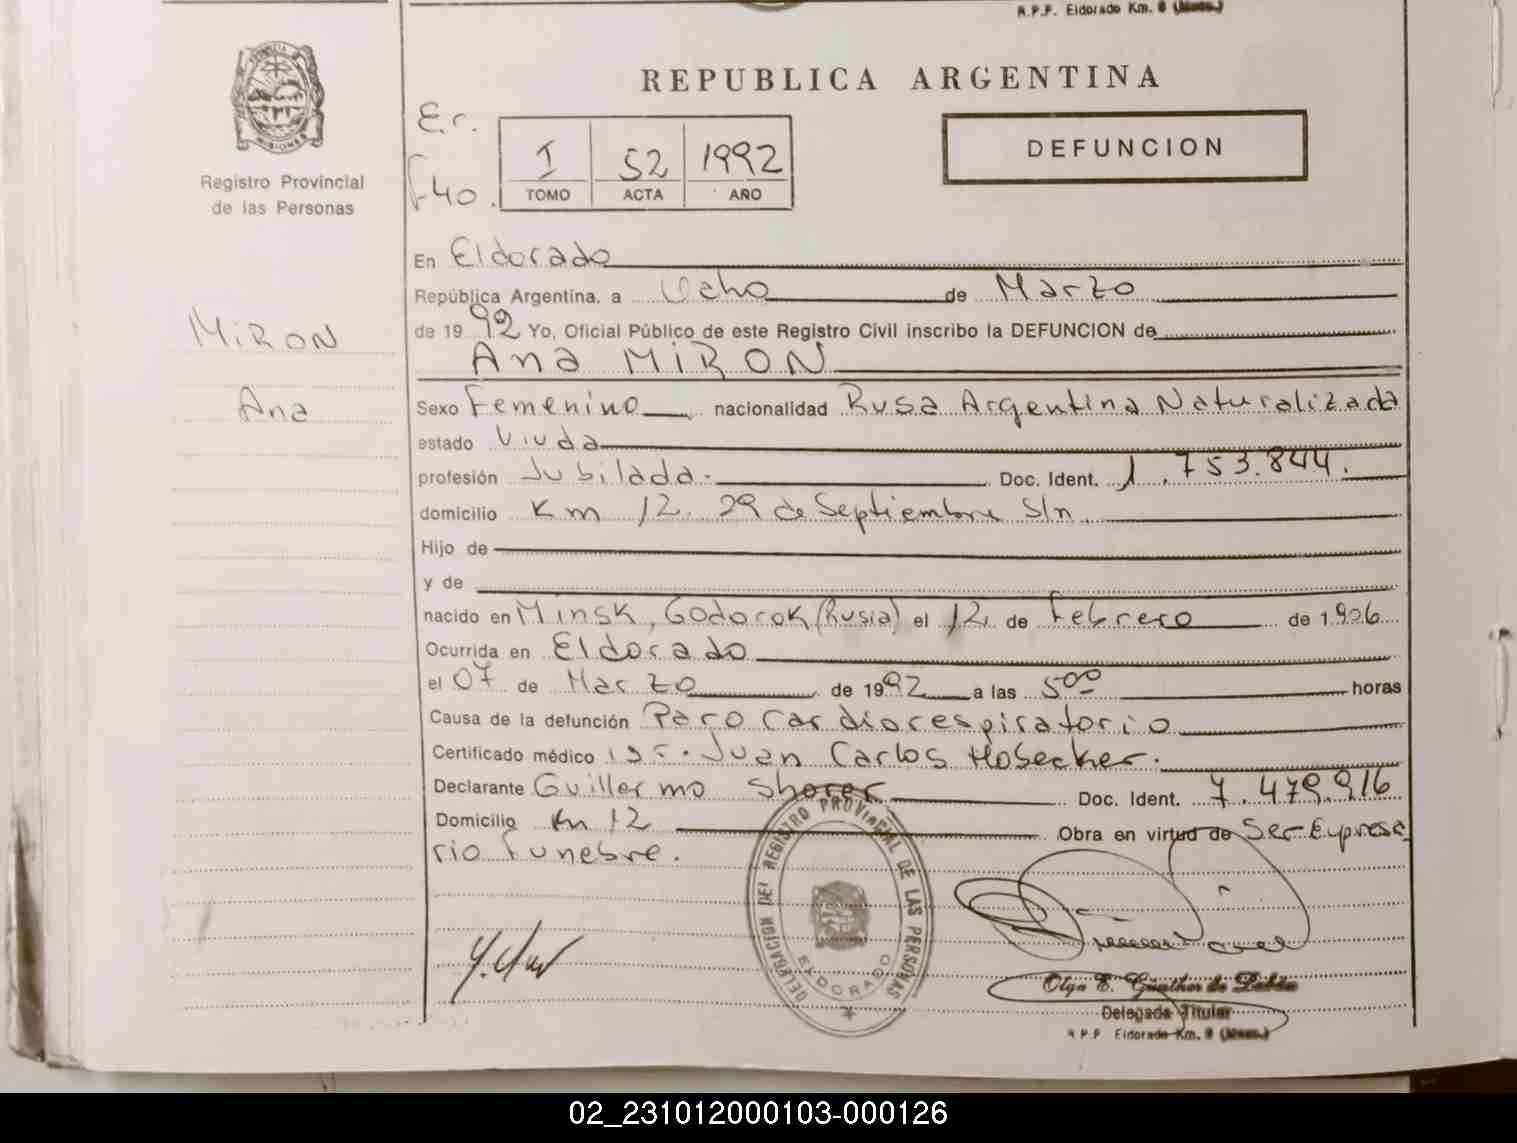 R.P.P. Eldorado Km. 8 (Mnes.)
REPUBLICA ARGENTINA
E.r.
I 52 1992
TOMO ACTA AÑO
DEFUNCION
F40.
Registro Provincial
de las Personas
En Eldorado
República Argentina, a Ocho de Marzo
de 1992 Yo, Oficial Público de este Registro Civil inscribo la DEFUNCION de
Ana MIRON
MIRON
Ana
Sexo Femenino nacionalidad Rusa Argentina Naturalizada
estado Viuda
profesión Jubilada. Doc. Ident. 1.753.844.
domicilio Km 12. 29 de Septiembre S/n
Hijo de
y de
nacido en Minsk, Godorok (Rusia) el 12 de Febrero de 1.906
Ocurrida en Eldorado
el 07 de Marzo de 1992 a las 5ºº horas
Causa de la defunción Paro Cardiorespiratorio
Certificado médico Dr. Juan Carlos Hobecker.
Declarante Guillermo Shorer Doc. Ident. 7.479.916
Domicilio Km 12 Obra en virtud de Ser Empresa
rio Funebre.
DELEGACION DEL REGISTRO PROVINCIAL DE LAS PERSONAS
ELDORADO
Olga E. Günther de
Delegada Titular
R.P.P Eldorado Km. 8 (Mnes.)
02_231012000103-000126